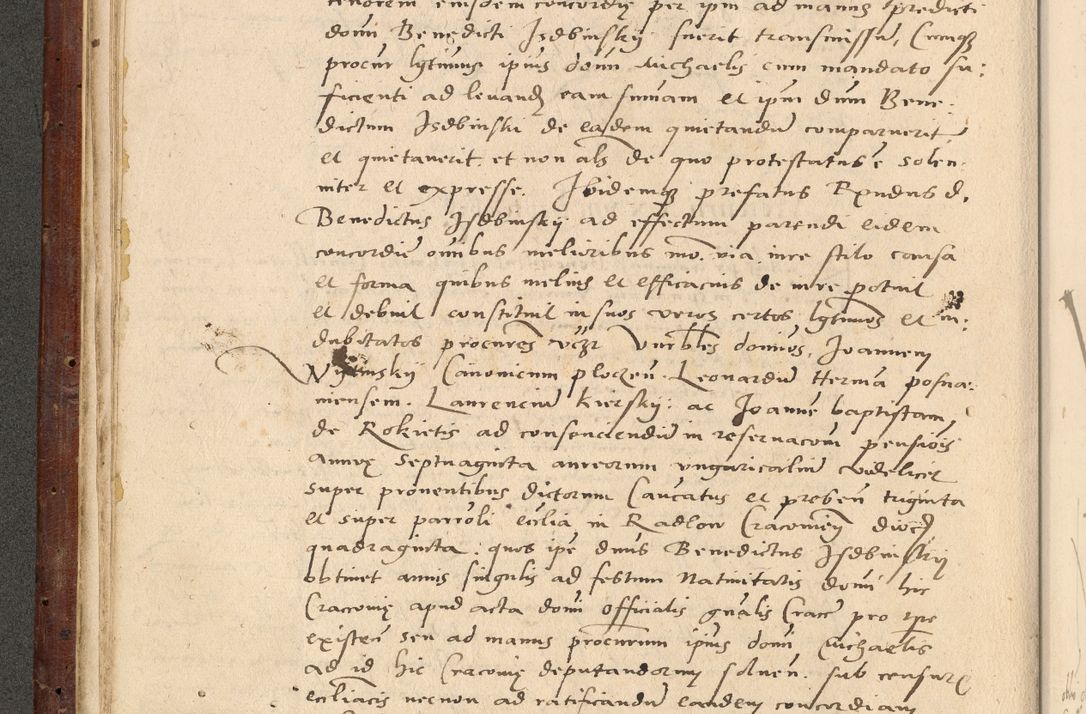 tenorem eiusdem concordię per ipm ad manus predicti
domi Benedicti Isdbinskÿ fuerit transmissu, Cumqȝ
procur lgtimus ipius domi Michaelis cum mandato su:
ficienti ad levand eam sumam et ipm dum Bene
dictum Isdbinski de eadem quietandu comparuerit
et quietaverit, et non als de quo protestatus e solen
niter et expresse. Ibidemqȝ prefatus Rvndus d.
Benedictus Isdbinskÿ ad effectum parendi eidem
concordie omibus melioribus mo. via iure stilo causa
et forma quibus melius et efficacius de iure potuit
et debuit constituit in suos veros certos lgtimos et in:
dubitatos procures vcȝ Vnrbles domos, Joannem
Canonicum plocen. Leonardu Herma posna
niensem. Laurenciu Kierskÿ: ac Joanne baptistam
de Rokietis ad consenciendu in reservacom pensiois
annuę septuaginta aureorum vngaricaliu videlicet
super proventibus dictorum Cancatus et preben triginta
et super parroli ecclia in Radlow Cracovien dioc
quadraginta: quos ipe dnus Benedictus Isdbinskÿ
obtinet annis singulis ad festum Nativitatis domi hic
Cracovię apud acta domi officialis gnalis Crace pro tpe
existen seu ad manus procurum ipius domi Michaelis
ad id hic Cracovię deputandorum solven. sub censure
eccliacis necnon ad ratificandu eandem concordiam